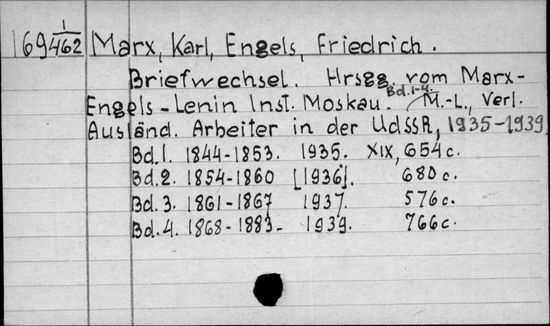 169 1/462 Marx, Karl, Engels, Friedrich.
Briefwechsel. Hrsgg. vom Marx-
Engels-Lenin Inst. Moskau. Bd. 1-4. M.-L., Verl.
Ausländ. Arbeiter in der UdSSR, 1935-1939
Bd. 1. 1844-1853. 1935. XIX, 654 c.
Bd. 2. 1854-1860 [1936]. 680 c.
Bd. 3. 1861-1867 1937. 576 c.
Bd. 4. 1868-1883- 1939. 766 c.